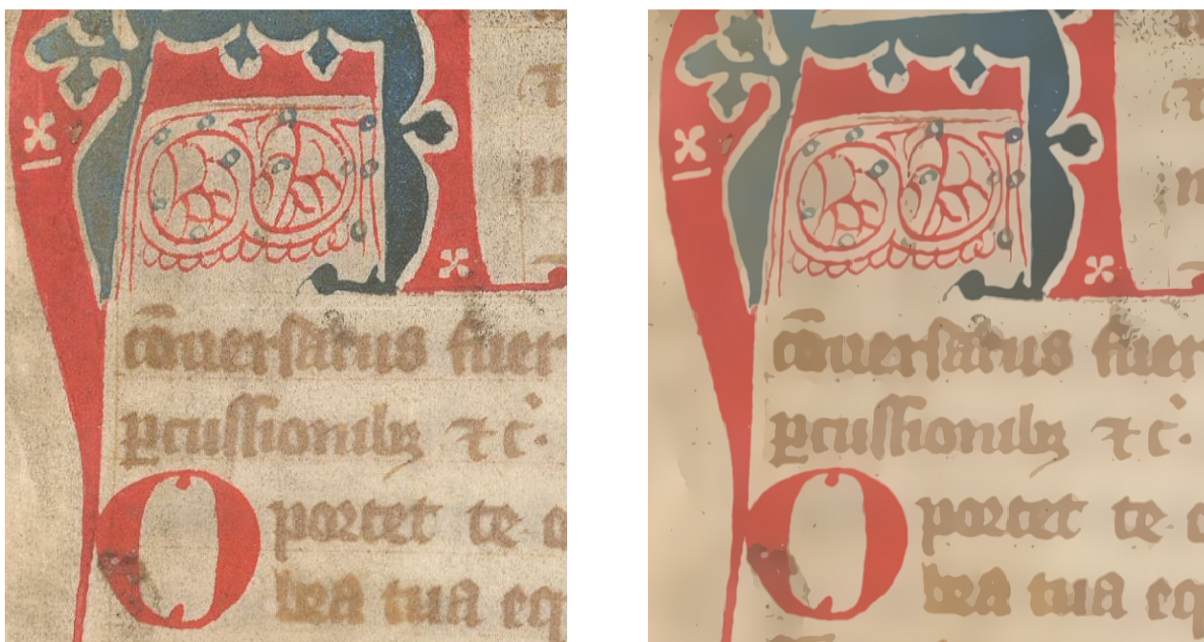 cōuersatus fuer
ꝑcussionibꝫ ⁊c·
Oportet te
bra tua eq
cōuersatus fuer
ꝑcussionibꝫ ⁊c·
Oportet te
bra tua eq